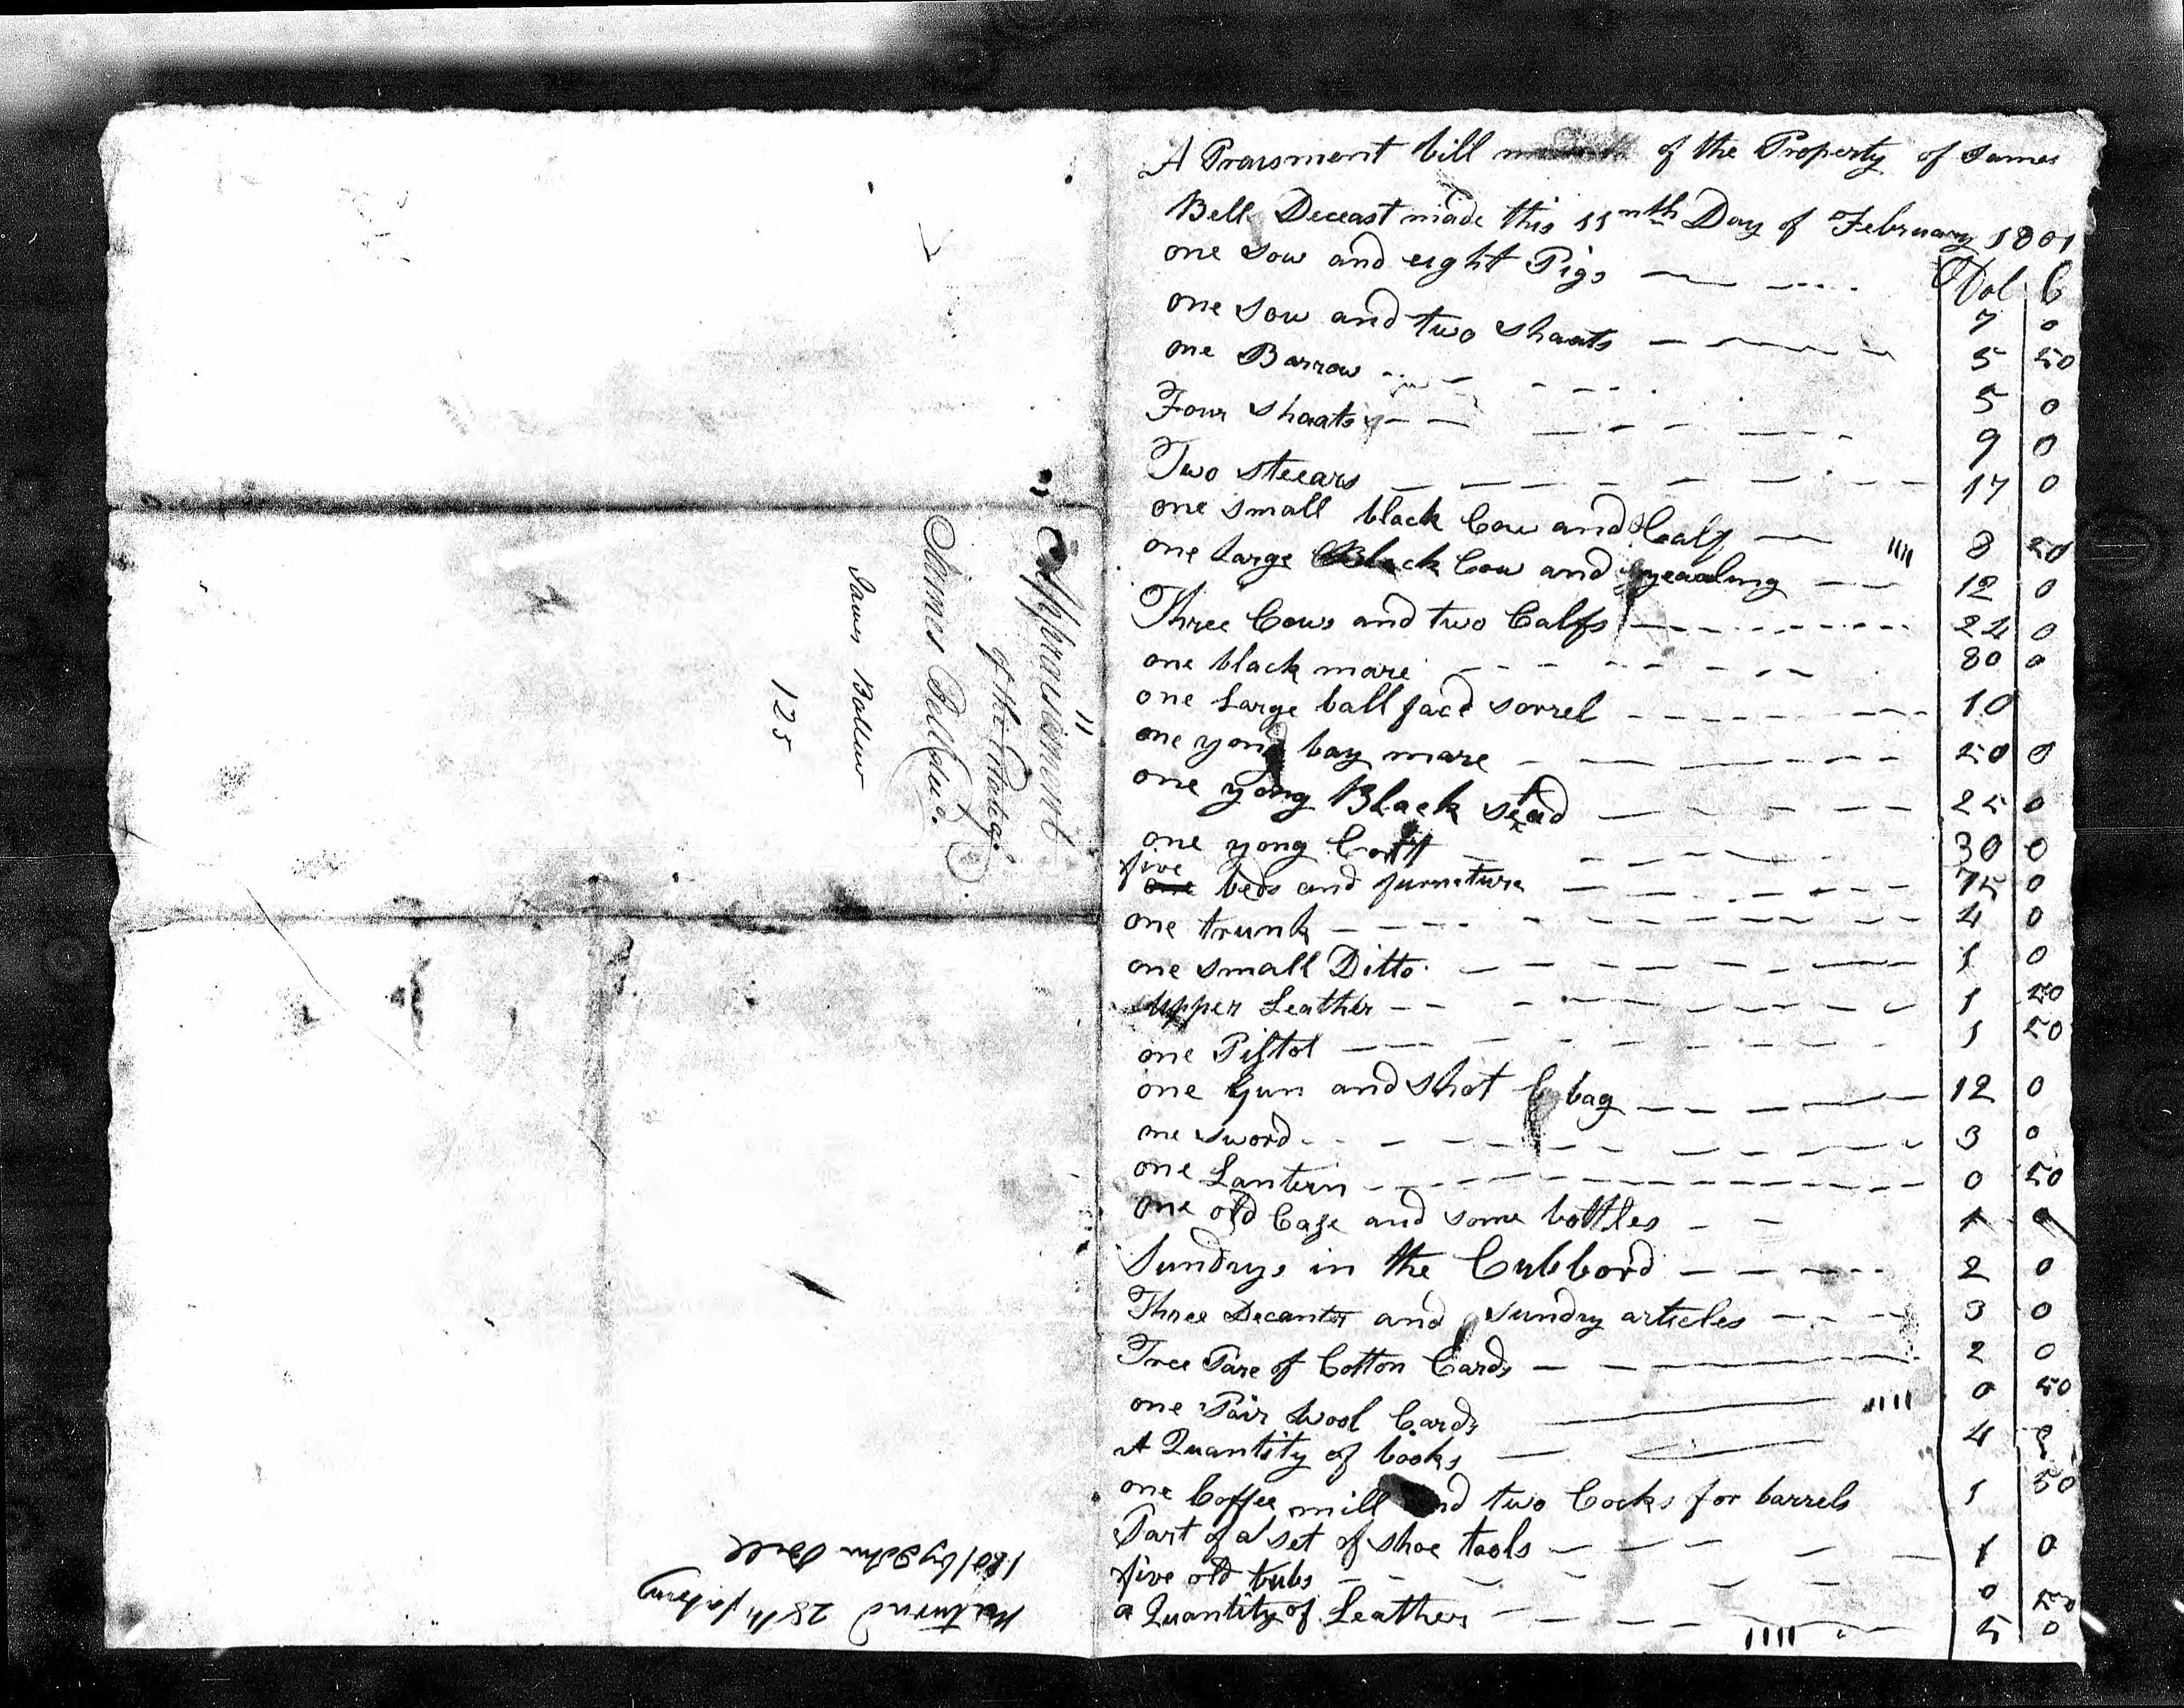 "Appraisement"
of the Estate
James Bell decd.
James Bell
125
Returnd 28th
1801 by John Bell
A Praisment bill of the Property of James
Bell Deceast made this 11nth Day of February 1801
Dol C
one Sow and eight Pigs 7 0
one Sow and two Shoats 5 50
one Barrow 5 0
Four Shoats 9 0
Two steears 17 0
one small black Cow and Calf 8 50
one Large Black Cow and yearling 12 0
Three Cows and two Calfs 24 0
one black mare 80 0
one Large ball face sorrel 10
one yong bay mare 50 0
one yong Black stead 25 0
one yong Colt 30 0
five beds and furneture 75 0
one trunk 4 0
one small Ditto 1 0
Upper Leather 1 50
one Pistol 1 50
one Gun and Shot bag 12 0
one sword 3 0
one Lantern 0 50
one old Case and some bottles 1 0
Sundrys in the Cubbord 2 0
Three Decanter and Sundry articles 3 0
Tree Pare of Cotton Cards 2 0
one Pair Wool Cards 0 50
A Quantity of books 4 0
one Coffee mill and two Cocks for barrels 1 50
Part of a set of shoe tools 1 0
five old tubs 0 50
a Quantity of Leather 5 0